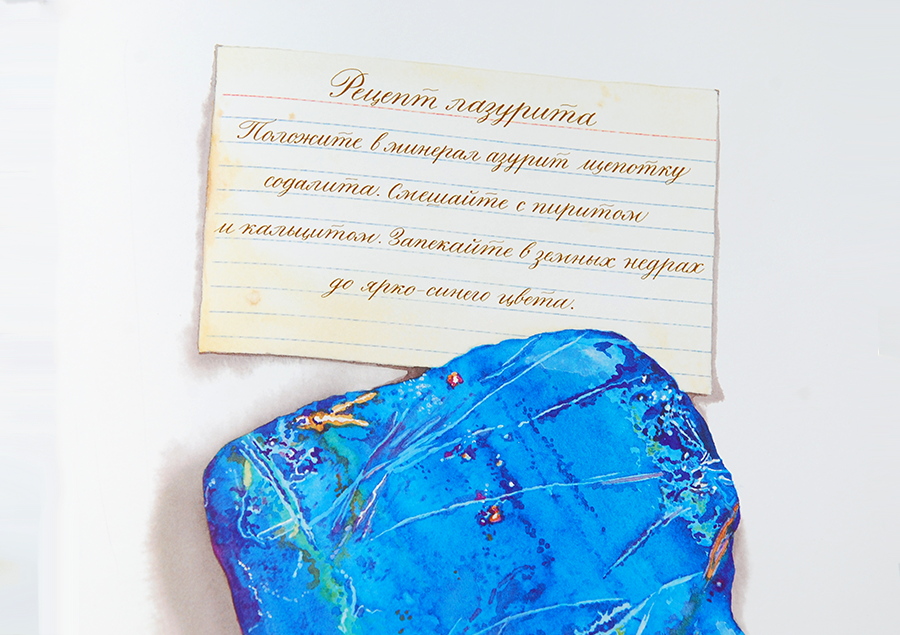 Рецепт лазурита
Положите в минерал азурит щепотку
содалита. Смешайте с пиритом
и кальцитом. Запекайте в земных недрах
до ярко-синего цвета.